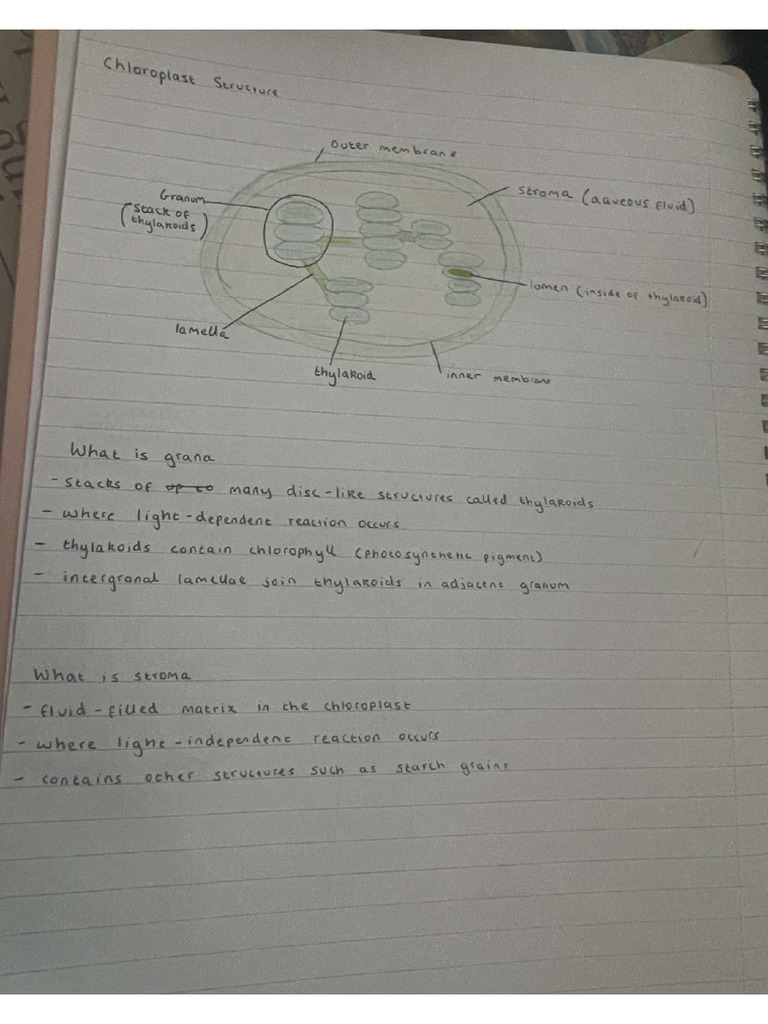 Chloroplast Structure
Outer membrane
Granum
(stack of thylakoids)
stroma (aqueous fluid)
lumen (inside of thylakoid)
lamella
thylakoid
inner membrane
What is grana
- stacks of up to many disc-like structures called thylakoids
- where light-dependent reaction occurs
- thylakoids contain chlorophyll (photosynthetic pigment)
- intergranal lamellae join thylakoids in adjacent granum
What is stroma
- fluid-filled matrix in the chloroplast
- where light-independent reaction occurs
- contains other structures such as starch grains